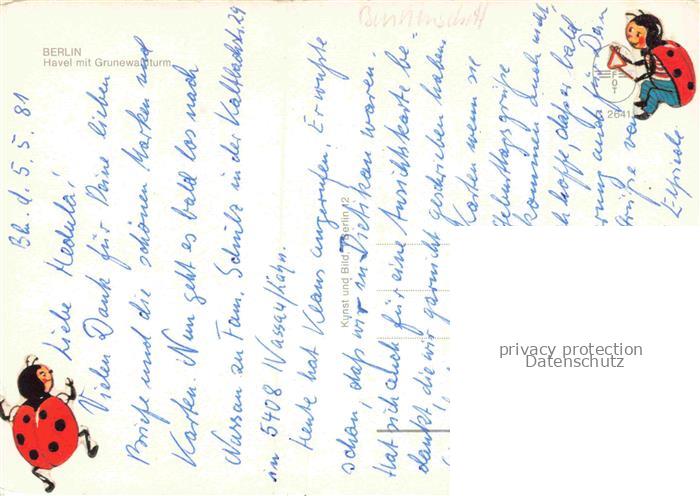 BERLIN
Havel mit Grunewaldturm
Bln. d. 5.5.81
Liebe Hedula!
Vielen Dank für Deine lieben
Briefe und die schönen Marken und
Karten. Nun geht es bald los nach
Nassau zu Fam. Schulz in der Kaltbachstr. 29
in 5408 Nassau/Lahn.
Heute hat Klaus angerufen. Er wußte
schon, daß wir in Dietikon waren.
Hat sich auch für eine Ansichtskarte be-
dankt die wir garnicht geschrieben haben.
Karten wenn sie
Geburtstagsgrüße
kommen doch
ch hoffe, daß er bald
rung auch für Dein
Grüße von
Kunst und Bild, Berlin 12
2641
privacy protection
Datenschutz